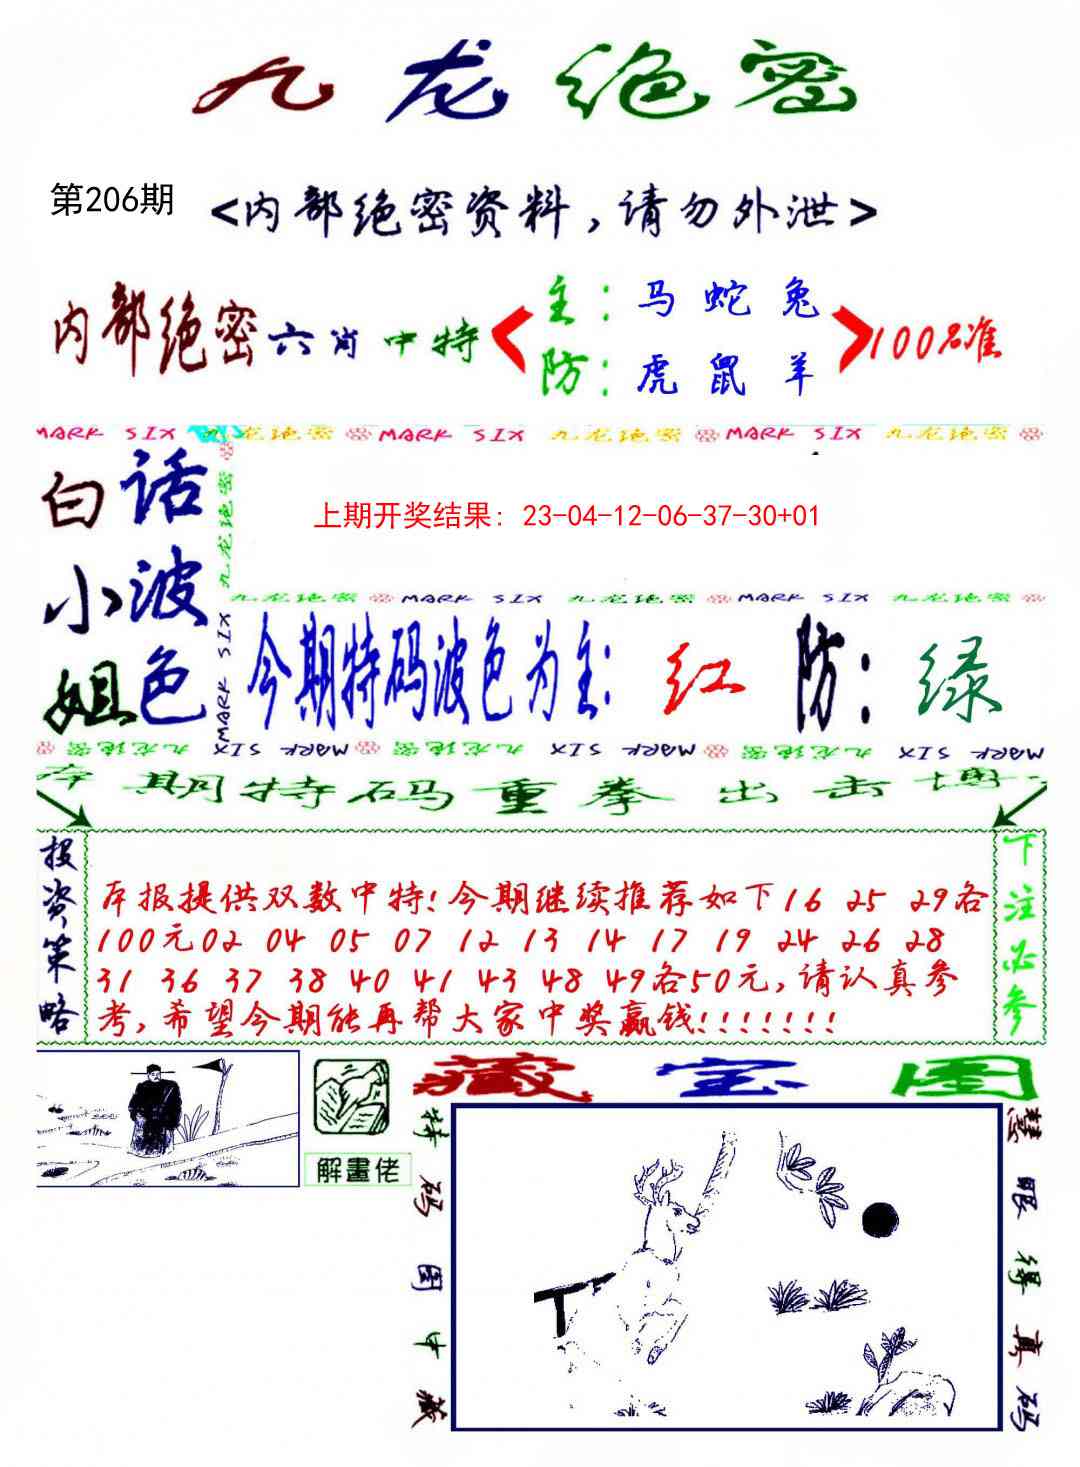 九龙绝密
第206期
<内部绝密资料,请勿外泄>
内部绝密六肖中特
主:马蛇兔
防:虎鼠羊
100%准
MARK SIX 九龙绝密 MARK SIX 九龙绝密 MARK SIX 九龙绝密
白小姐
话波色
九龙绝密
MARK SIX
上期开奖结果: 23-04-12-06-37-30+01
九龙绝密 MARK SIX 九龙绝密 MARK SIX 九龙绝密
今期特码波色为主: 红 防: 绿
九龙绝密 MARK SIX 九龙绝密 MARK SIX 九龙绝密 MARK SIX
本期特码重拳出击博
投资策略
本报提供双数中特!今期继续推荐如下16 25 29各
100元02 04 05 07 12 13 14 17 19 24 26 28
31 36 37 38 40 41 43 48 49各50元,请认真参
考,希望今期能再帮大家中奖赢钱!!!!!!!
下注必参
解畫佬
藏宝图
特码图中藏
慧眼得真码